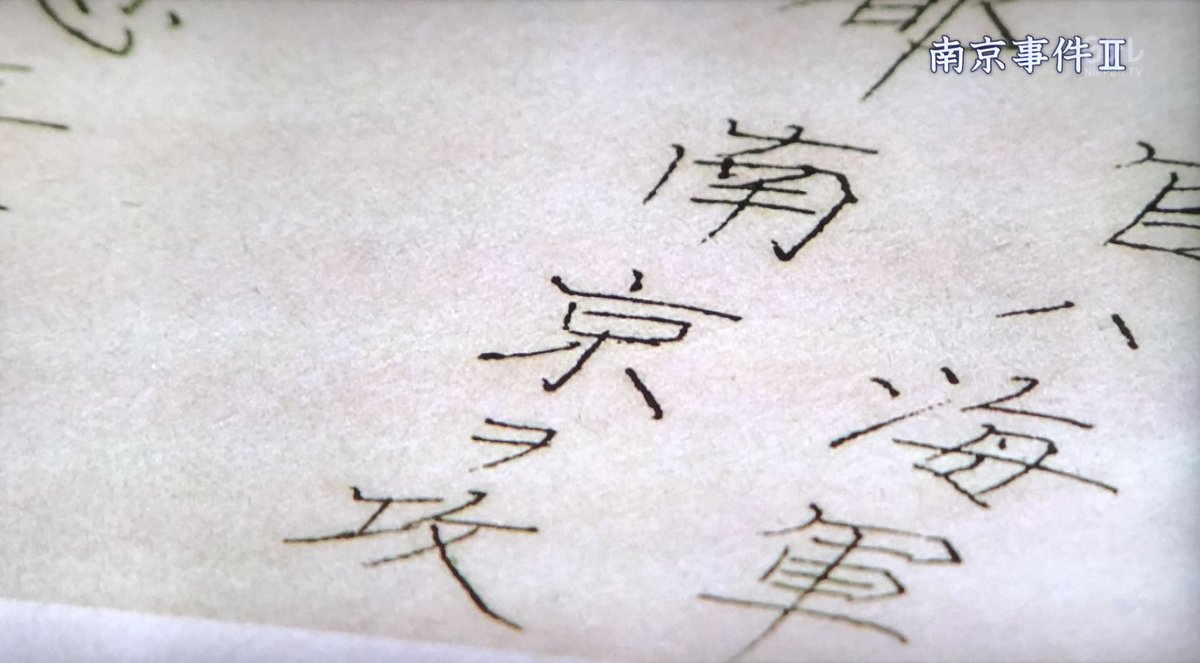 南京事件Ⅱ
ハ海軍
南京ヲ攻